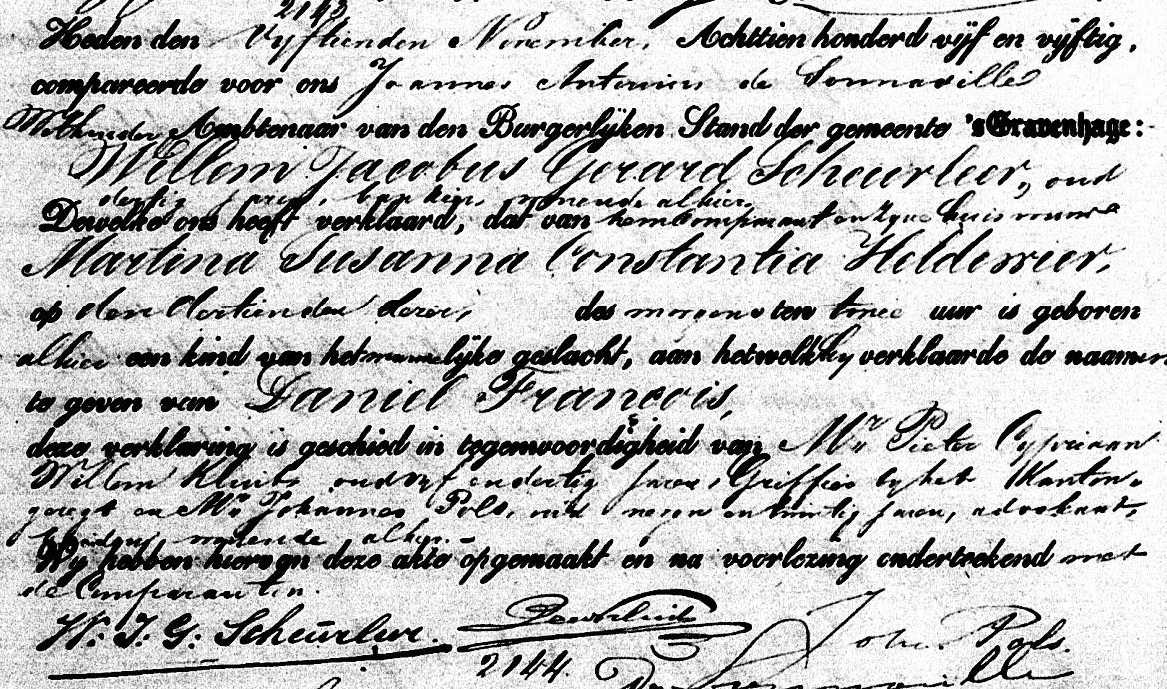 2143
Heden den Vyftienden November, Achttien honderd vijf en vijftig,
compareerde voor ons Joannes Antonius de Sonnaville
Wethouder Ambtenaar van den Burgerlijken Stand der gemeente 's Gravenhage:
Willem Jacobus Gerard Scheurleer, oud
dertig jaren, bankier, wonende alhier,
Dewelke ons heeft verklaard, dat van hem Comparant en zyne huisvrouw
Martina Susanna Constantia Heldewier,
op den dertienden dezer, des morgens ten twee uur is geboren
alhier een kind van het mannelijke geslacht, aan hetwelk hy verklaarde de naamen
te geven van Daniel François,
deze verklaring is geschied in tegenwoordigheid van Mr. Pieter Cypriaan
Willem oud vyf en dertig Jaren, Griffier by het Kanton-
geregt en Mr. Johannes Pols, oud negen en twintig Jaren, advokaat,
beiden wonende alhier.
Wij hebben hiervan deze akte opgemaakt en na voorlezing onderteekend met
de Comparanten.
W. J. G. Scheurleer.
Joh. Pols.
2144.